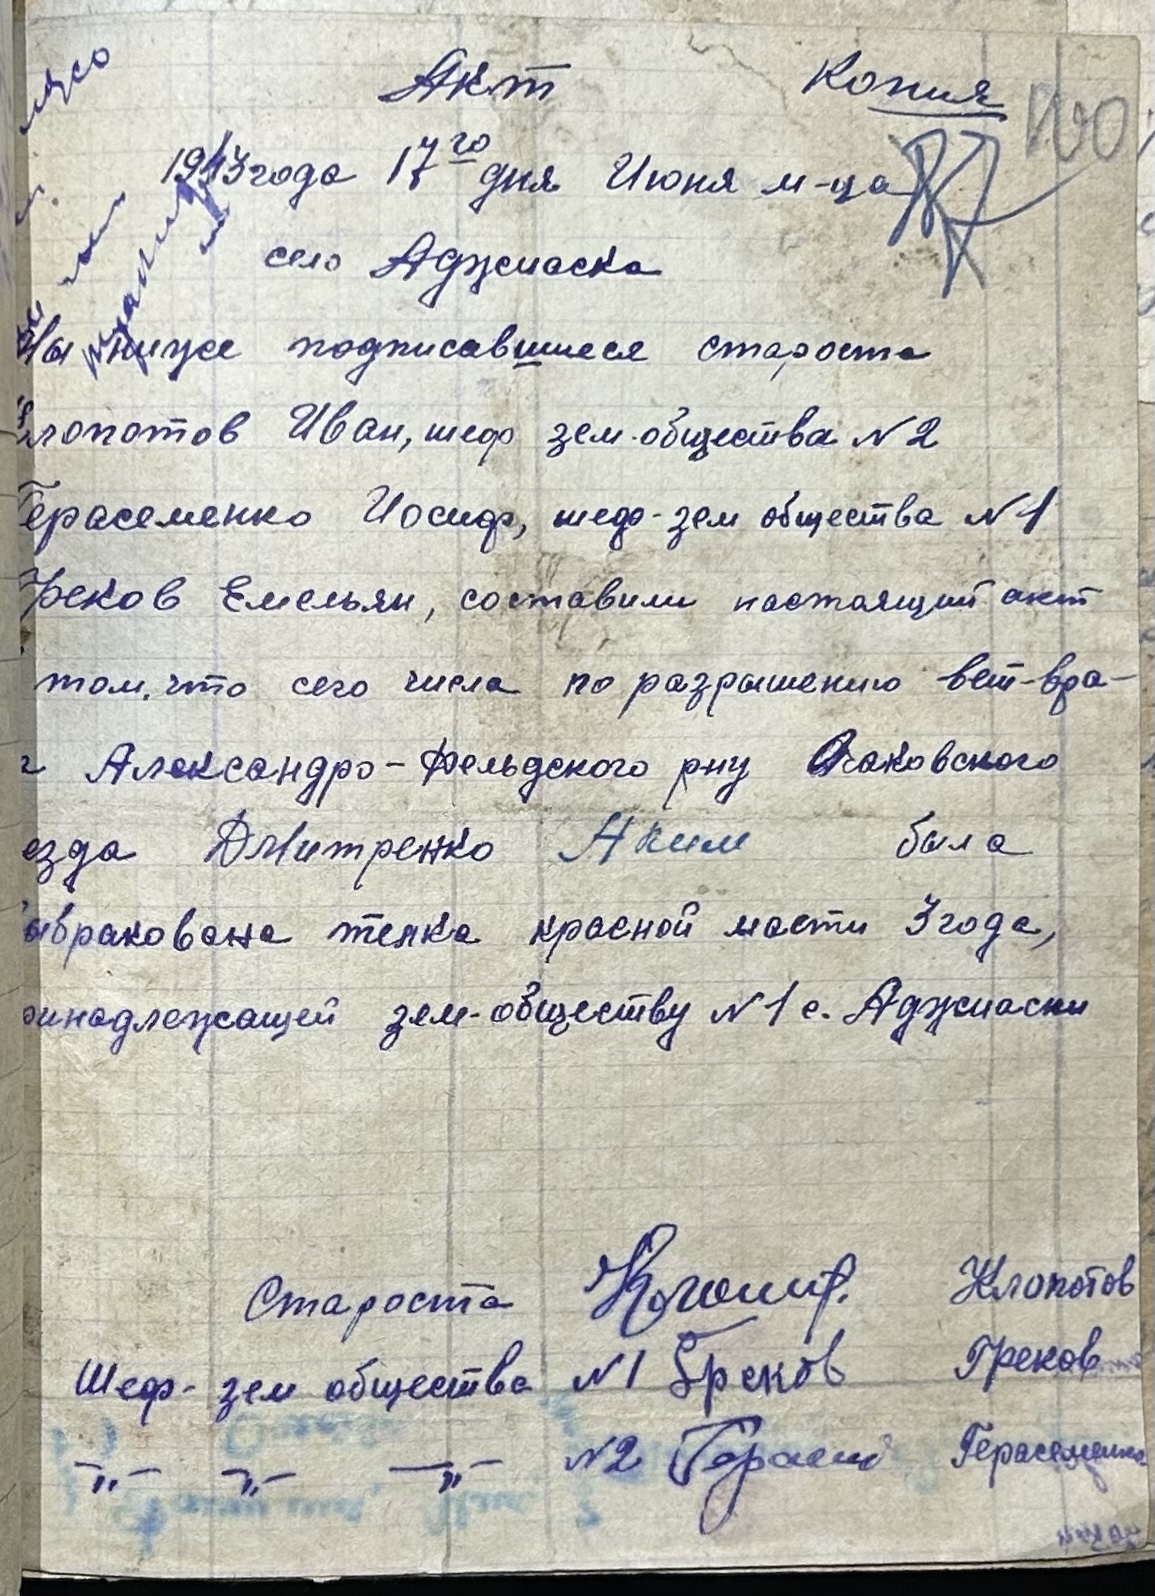 Акт Копия
1943 года 17го дня Июня м-ца
село Аджиаска
Мы ниже подписавшиеся староста
Клопотов Иван, шеф зем. общества N2
Герасеменко Иосиф, шеф-зем общества N1
Греков Емельян, составили настоящий акт
том, что сего числа по разрышению вет-вра-
Александро-Фельдского рну Очаковского
езда Дмитренко Аким была
выбракована телка красной масти 3 года,
ринадлежащей зем-обществу N1 с. Аджиаски
Староста Клопотов
Шеф-зем общества N1 Греков Греков
-„- -„- -„- N2 Герасем Герасеменко
мясо